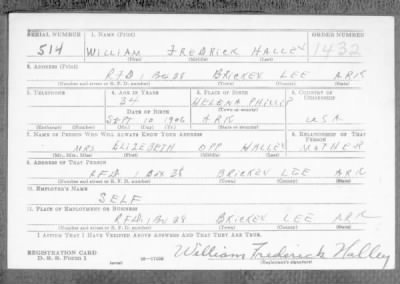 SERIAL NUMBER 1. NAME (Print) ORDER NUMBER
514 WILLIAM FREDRICK HALLEY 1432
(First) (Middle) (Last)
2. ADDRESS (Print)
RFD 1 Box 28 BRICKEY LEE ARK
(Number and street or R. F. D. number) (Town) (County) (State)
3. TELEPHONE 4. AGE IN YEARS 5. PLACE OF BIRTH 6. COUNTRY OF CITIZENSHIP
34 HELENA PHILLIP
DATE OF BIRTH (Town or county)
SEPT 10 1906 ARK USA
(Exchange) (Number) (Mo.) (Day) (Yr.) (State or country)
7. NAME OF PERSON WHO WILL ALWAYS KNOW YOUR ADDRESS 8. RELATIONSHIP OF THAT PERSON
MRS ELIZEBETH OPP HALLEY MOTHER
(Mr., Mrs., Miss) (First) (Middle) (Last)
9. ADDRESS OF THAT PERSON
RFD 1 Box 28 BRICKEY LEE ARK
(Number and street or R. F. D. number) (Town) (County) (State)
10. EMPLOYER'S NAME
SELF
11. PLACE OF EMPLOYMENT OR BUSINESS
RFD 1 Box 28 BRICKEY LEE ARK
(Number and street or R. F. D. number) (Town) (County) (State)
I AFFIRM THAT I HAVE VERIFIED ABOVE ANSWERS AND THAT THEY ARE TRUE.
REGISTRATION CARD
D. S. S. Form 1 (over) 16-17105 William Fredrick Halley
(Registrant's signature)